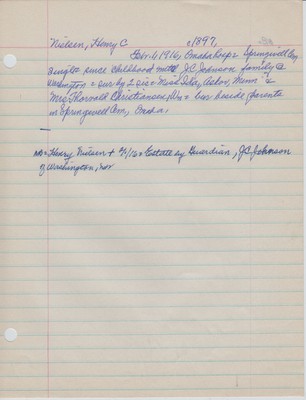 Nielsen, Henry C c1897,
Febr 1, 1916, Omaha Hosp = Springwell Cem
single since childhood with J.C. Johnson family @
Washington = sur by 2 sis = Miss Ida, Askov, Minn &
Mrs Thorvall Christiansen, = bur beside parents
in Springwell Cem, Omaha,
—
Henry Nielsen + 2/1/16 = Estate by Guardian, J.C. Johnson
of Washington, Nebr